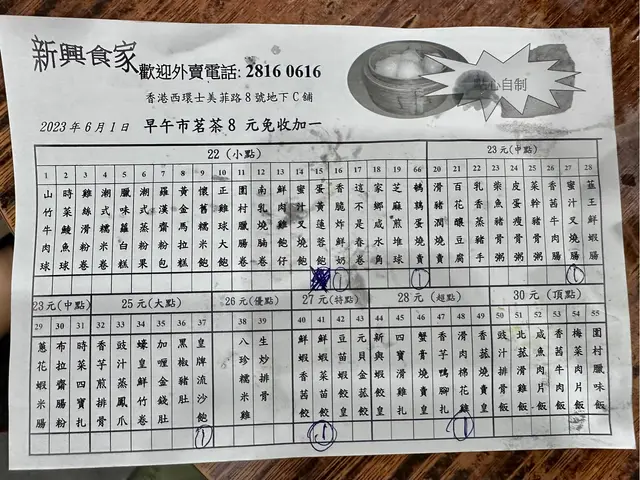 新興食家 歡迎外賣電話: 2816 0616
點心自制
香港西環士美菲路8號地下C舖
2023年6月1日 早午市茗茶8元免收加一
22 (小點)
23元(中點)
1 山竹牛肉球
2 時菜鯪魚球
3 雞絲粉卷
4 潮式糯米卷
5 臘味蘿白糕
6 潮州蒸粉果
7 羅漢齋腸包
8 黃金馬拉糕
9 懷舊糯米飽
10 正雞球大飽
11 圍村臘腸卷
12 南乳燒腩卷
13 鮮肉雞飽仔
14 蜜汁叉燒飽
15 蛋黃蓮蓉飽
16 香脆炸鮮奶
17 這不是春卷
18 家鄉咸水角
19 芝麻煎堆球
66 鵪鶉蛋燒賣
20 滑豬潤燒賣
21 百花釀豆腐
22 乳香蒸豬手
23 柴魚豬骨粥
24 皮蛋瘦肉粥
25 菜幹豬骨粥
26 香茜牛肉腸
27 蜜汁叉燒腸
28 韮王鮮蝦腸
① ① ①
23元(中點)
25元(大點)
26元(優點)
27元(特點)
28元(超點)
30元(頂點)
29 蔥花蝦米腸
30 布拉齋腸粉
31 時菜四寶扎
32 香芋煎排骨
33 豉汁蒸鳳爪
34 蠔皇鮮竹卷
35 加喱金錢肚
36 黑椒豬肚
37 皇牌流沙飽
38 八珍糯米雞
39 生炒排骨
40 鮮蝦香茜餃
41 鮮蝦菜苗餃
42 豆苗蝦餃皇
43 元貝金菇餃
44 新興蝦餃皇
45 四寶滑雞扎
46 蟹膏燒賣皇
47 香芋鴨腳扎
48 滑肉棉花雞
49 香菇燒賣皇
50 豉汁排骨飯
51 北菇滑雞飯
52 咸魚肉片飯
53 香茜牛肉飯
54 梅菜肉片飯
55 圍村臘味飯
① ① ①